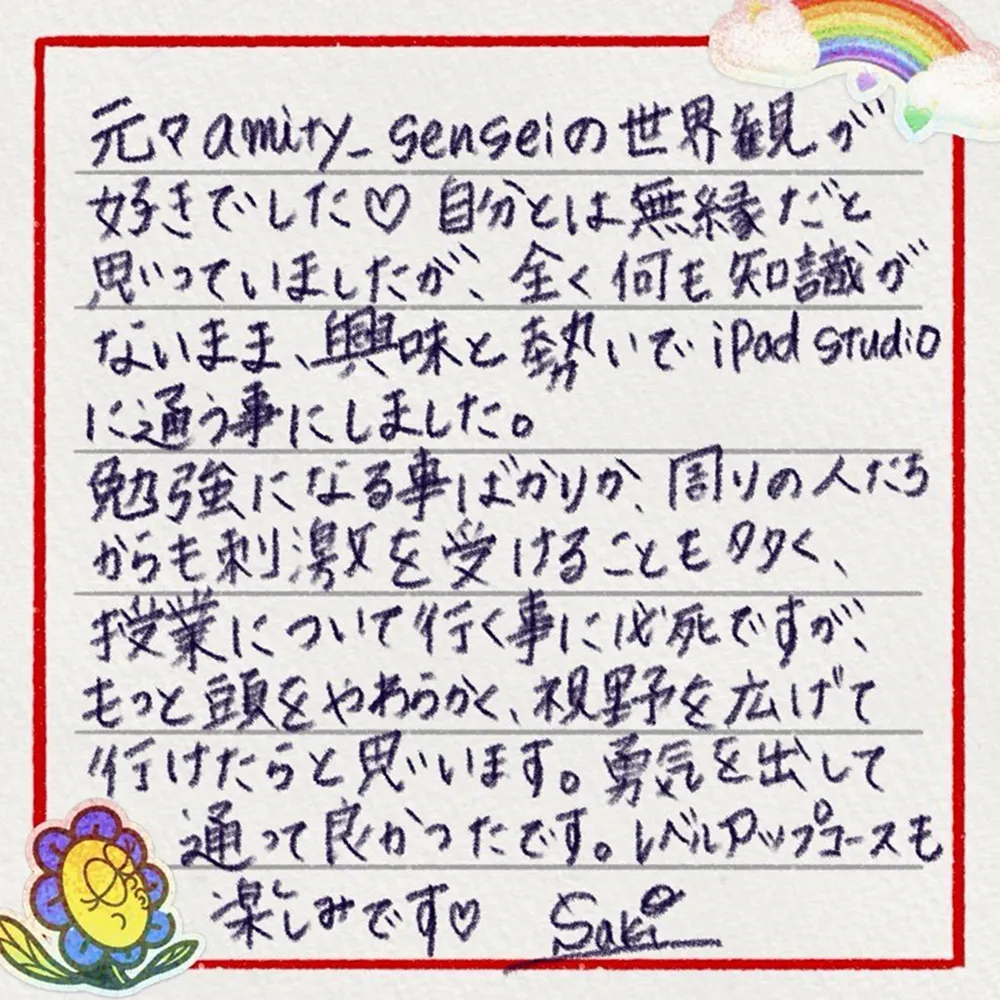 元々amity_senseiの世界観が
好きでした♡ 自分とは無縁だと
思っていましたが、全く何も知識が
ないまま、興味と勢いでiPad studio
に通う事にしました。
勉強になる事ばかりか、周りの人たち
からも刺激を受けることも多く、
授業について行く事に必死ですが、
もっと頭をやわらかく、視野を広げて
行けたらと思います。勇気を出して
通って良かったです。レベルアップコースも
楽しみです♡ Saki